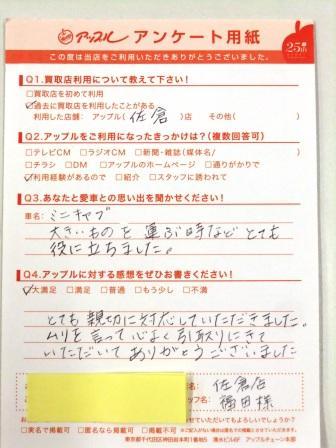 アップル アンケート用紙
25th
この度は当店をご利用いただきありがとうございました。
Q1.買取店利用について教えて下さい!
□買取店を初めて利用
☑過去に買取店を利用したことがある
利用した店舗: アップル( 佐倉 )店 その他( )
Q2.アップルをご利用になったきっかけは?(複数回答可)
□テレビCM □ラジオCM □新聞・雑誌(媒体名/ )
□チラシ □DM □アップルのホームページ □通りがかりで
☑利用経験があるので □紹介 □スタッフに誘われて
Q3.あなたと愛車との思い出を聞かせください!
車名: ミニキャブ
大きいものを運ぶ時など とても
役に立ちました。
Q4.アップルに対する感想をぜひお書きください!
☑大満足 □満足 □普通 □もう少し □不満
とても親切に対応していただきました。
ムリを言って心よく引取りにきて
いただいて ありがとうございました
佐倉店
ッフ名: 福田様
せていただいてもよろしいでしょうか?
□実名で掲載可 □匿名なら掲載可 □掲載不可
東京都千代田区神田岩本町1番地5 清水ビル6F アップルチェーン本部